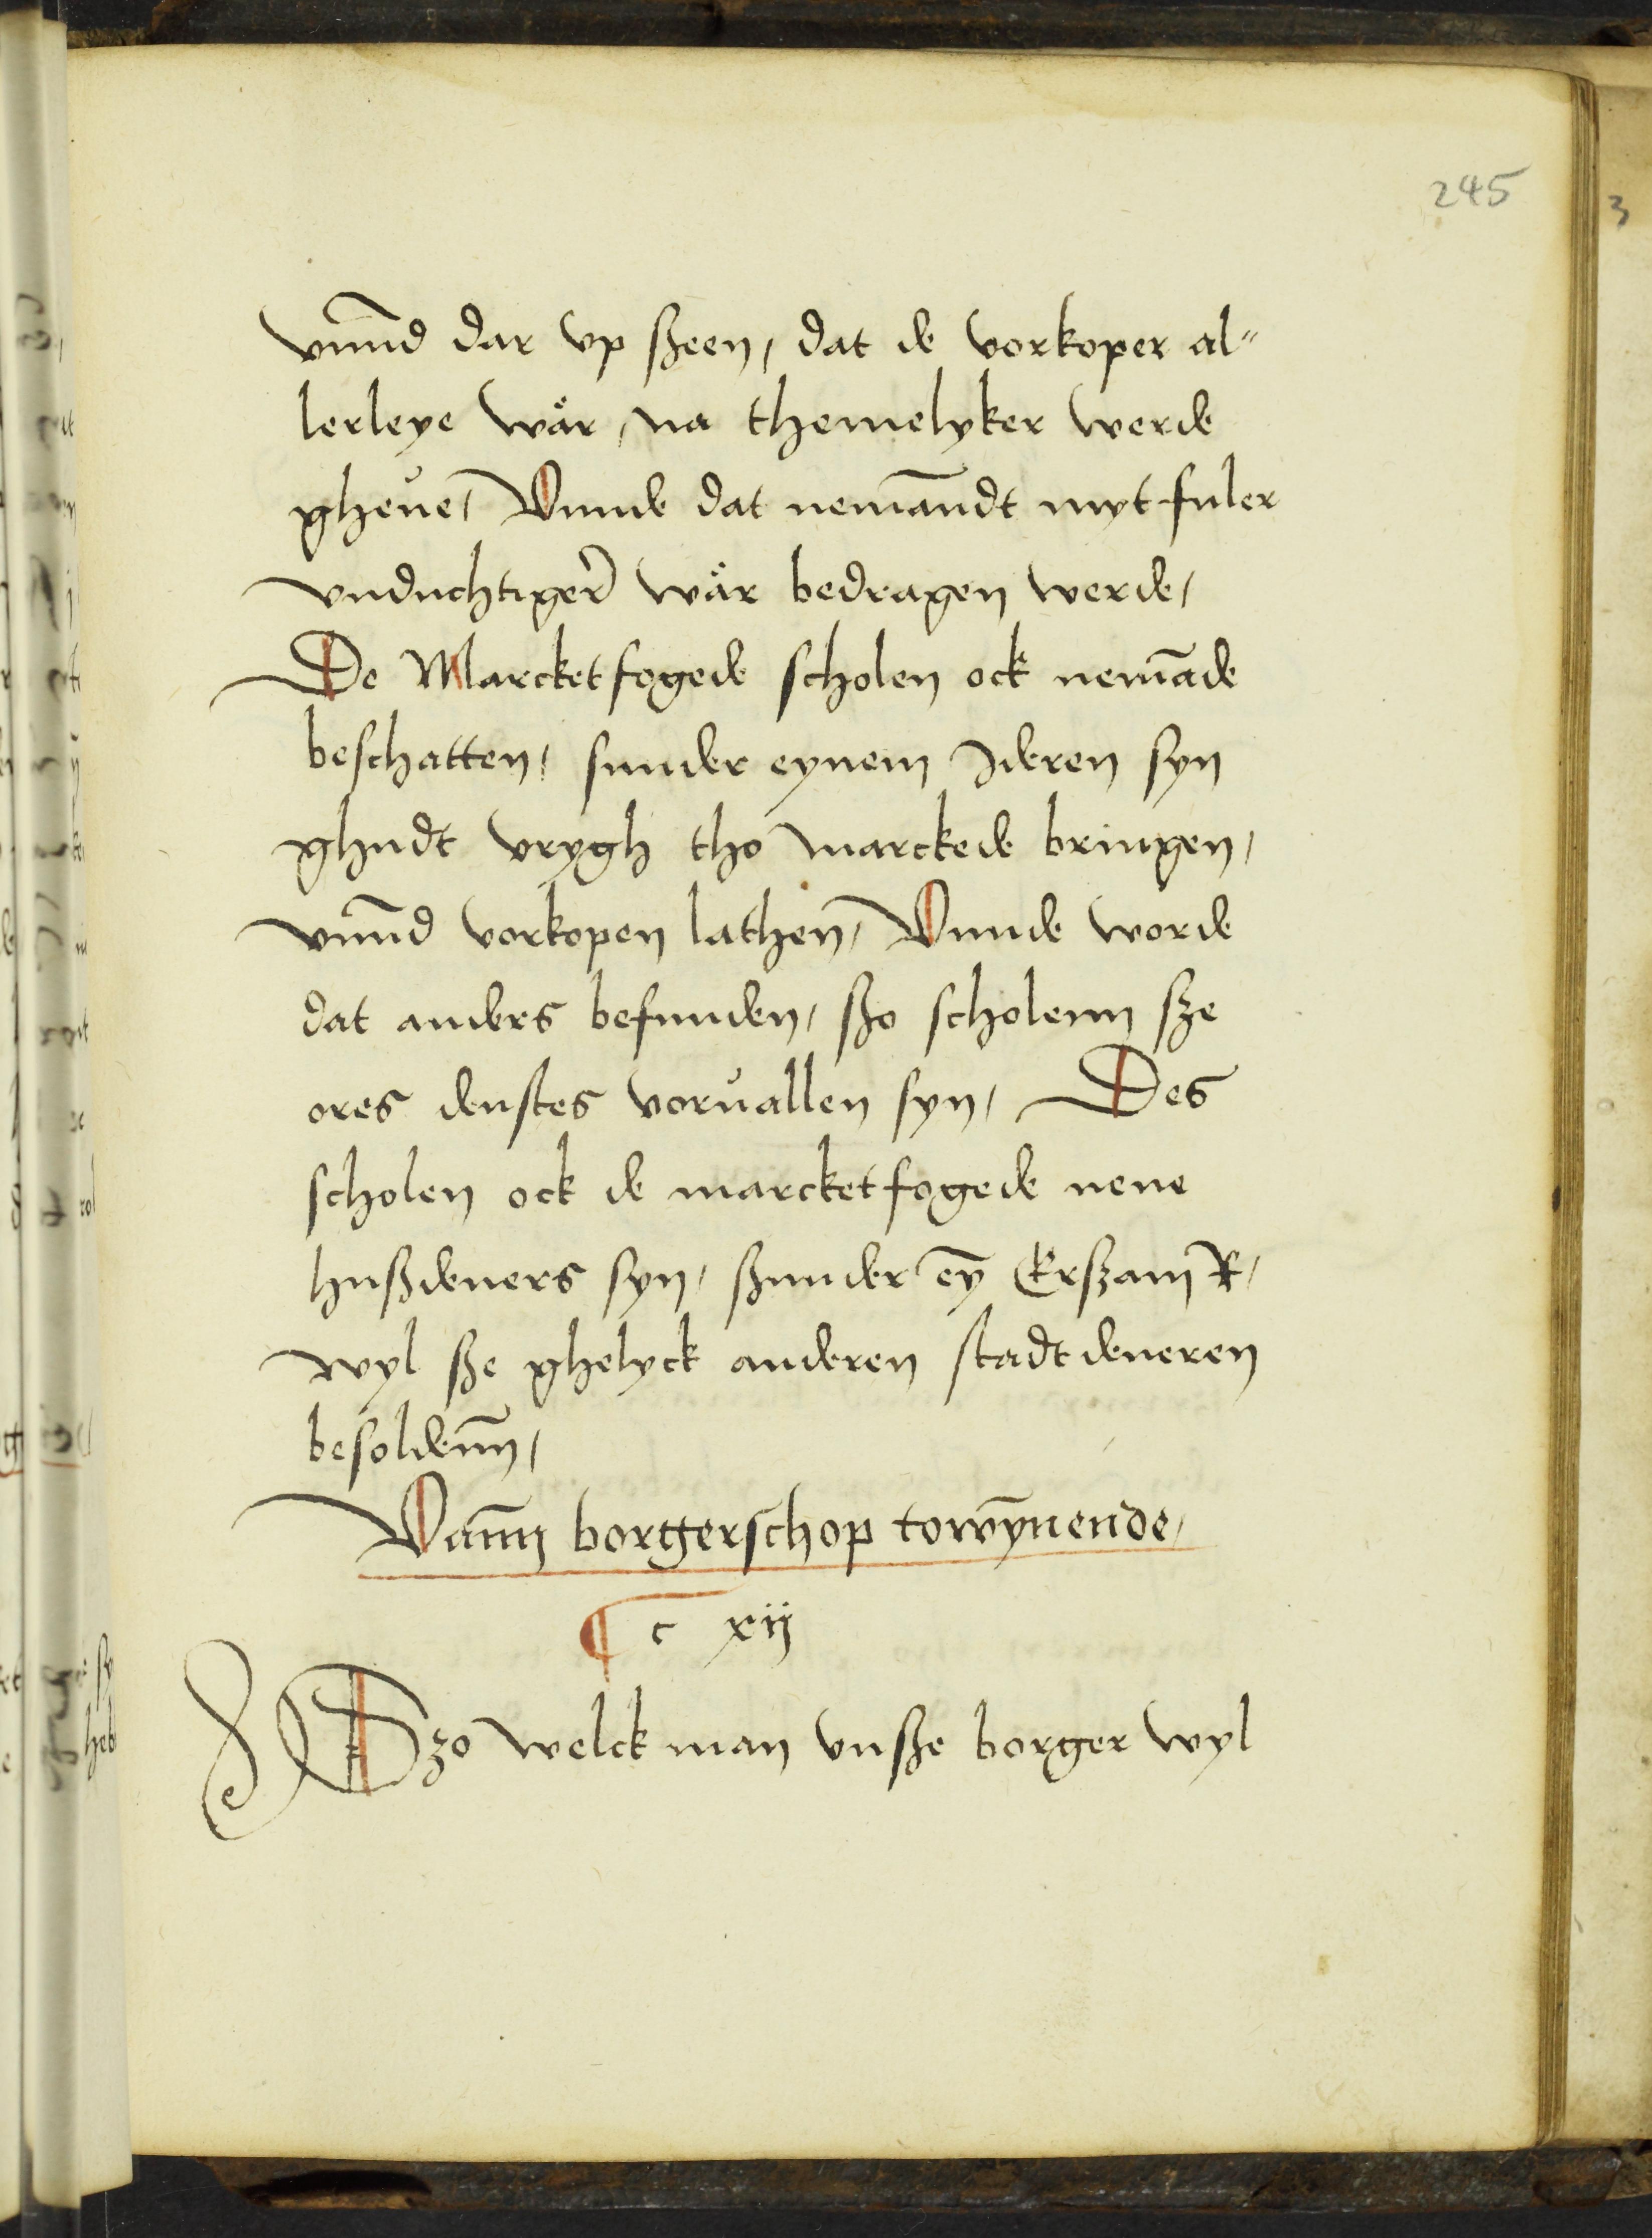 245
3
vnnd dar vp ßeen, dat de vorkoper al⸗
lerleye wår, na themelyker werde
gheue, Vnnde dat nemandt myt fuler
vnduchtiger wår bedragen werde,
De Marcketfogede scholen ock nemāde
beschatten, sunder eynem Jderen syn
ghudt vrygh tho marckede bringen,
vnnd vorkopen lathen, Vnnde worde
dat anders befunden, ßo scholenn sze
ores denstes voruallen syn, Des
scholen ock de marcketfogede nene
hußdeners syn, ßunder eȳ Erszam R,
wyl ße ghelyck anderen stadt deneren
besoldenn,
Vann borgerschop towȳnende,
¶ c xij
Szo welck man vnße borger wyl